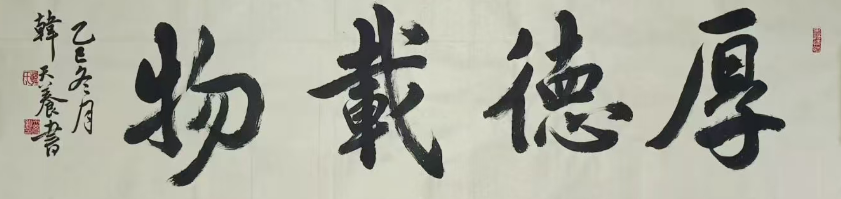 厚德載物
乙巳冬月
韓天養書